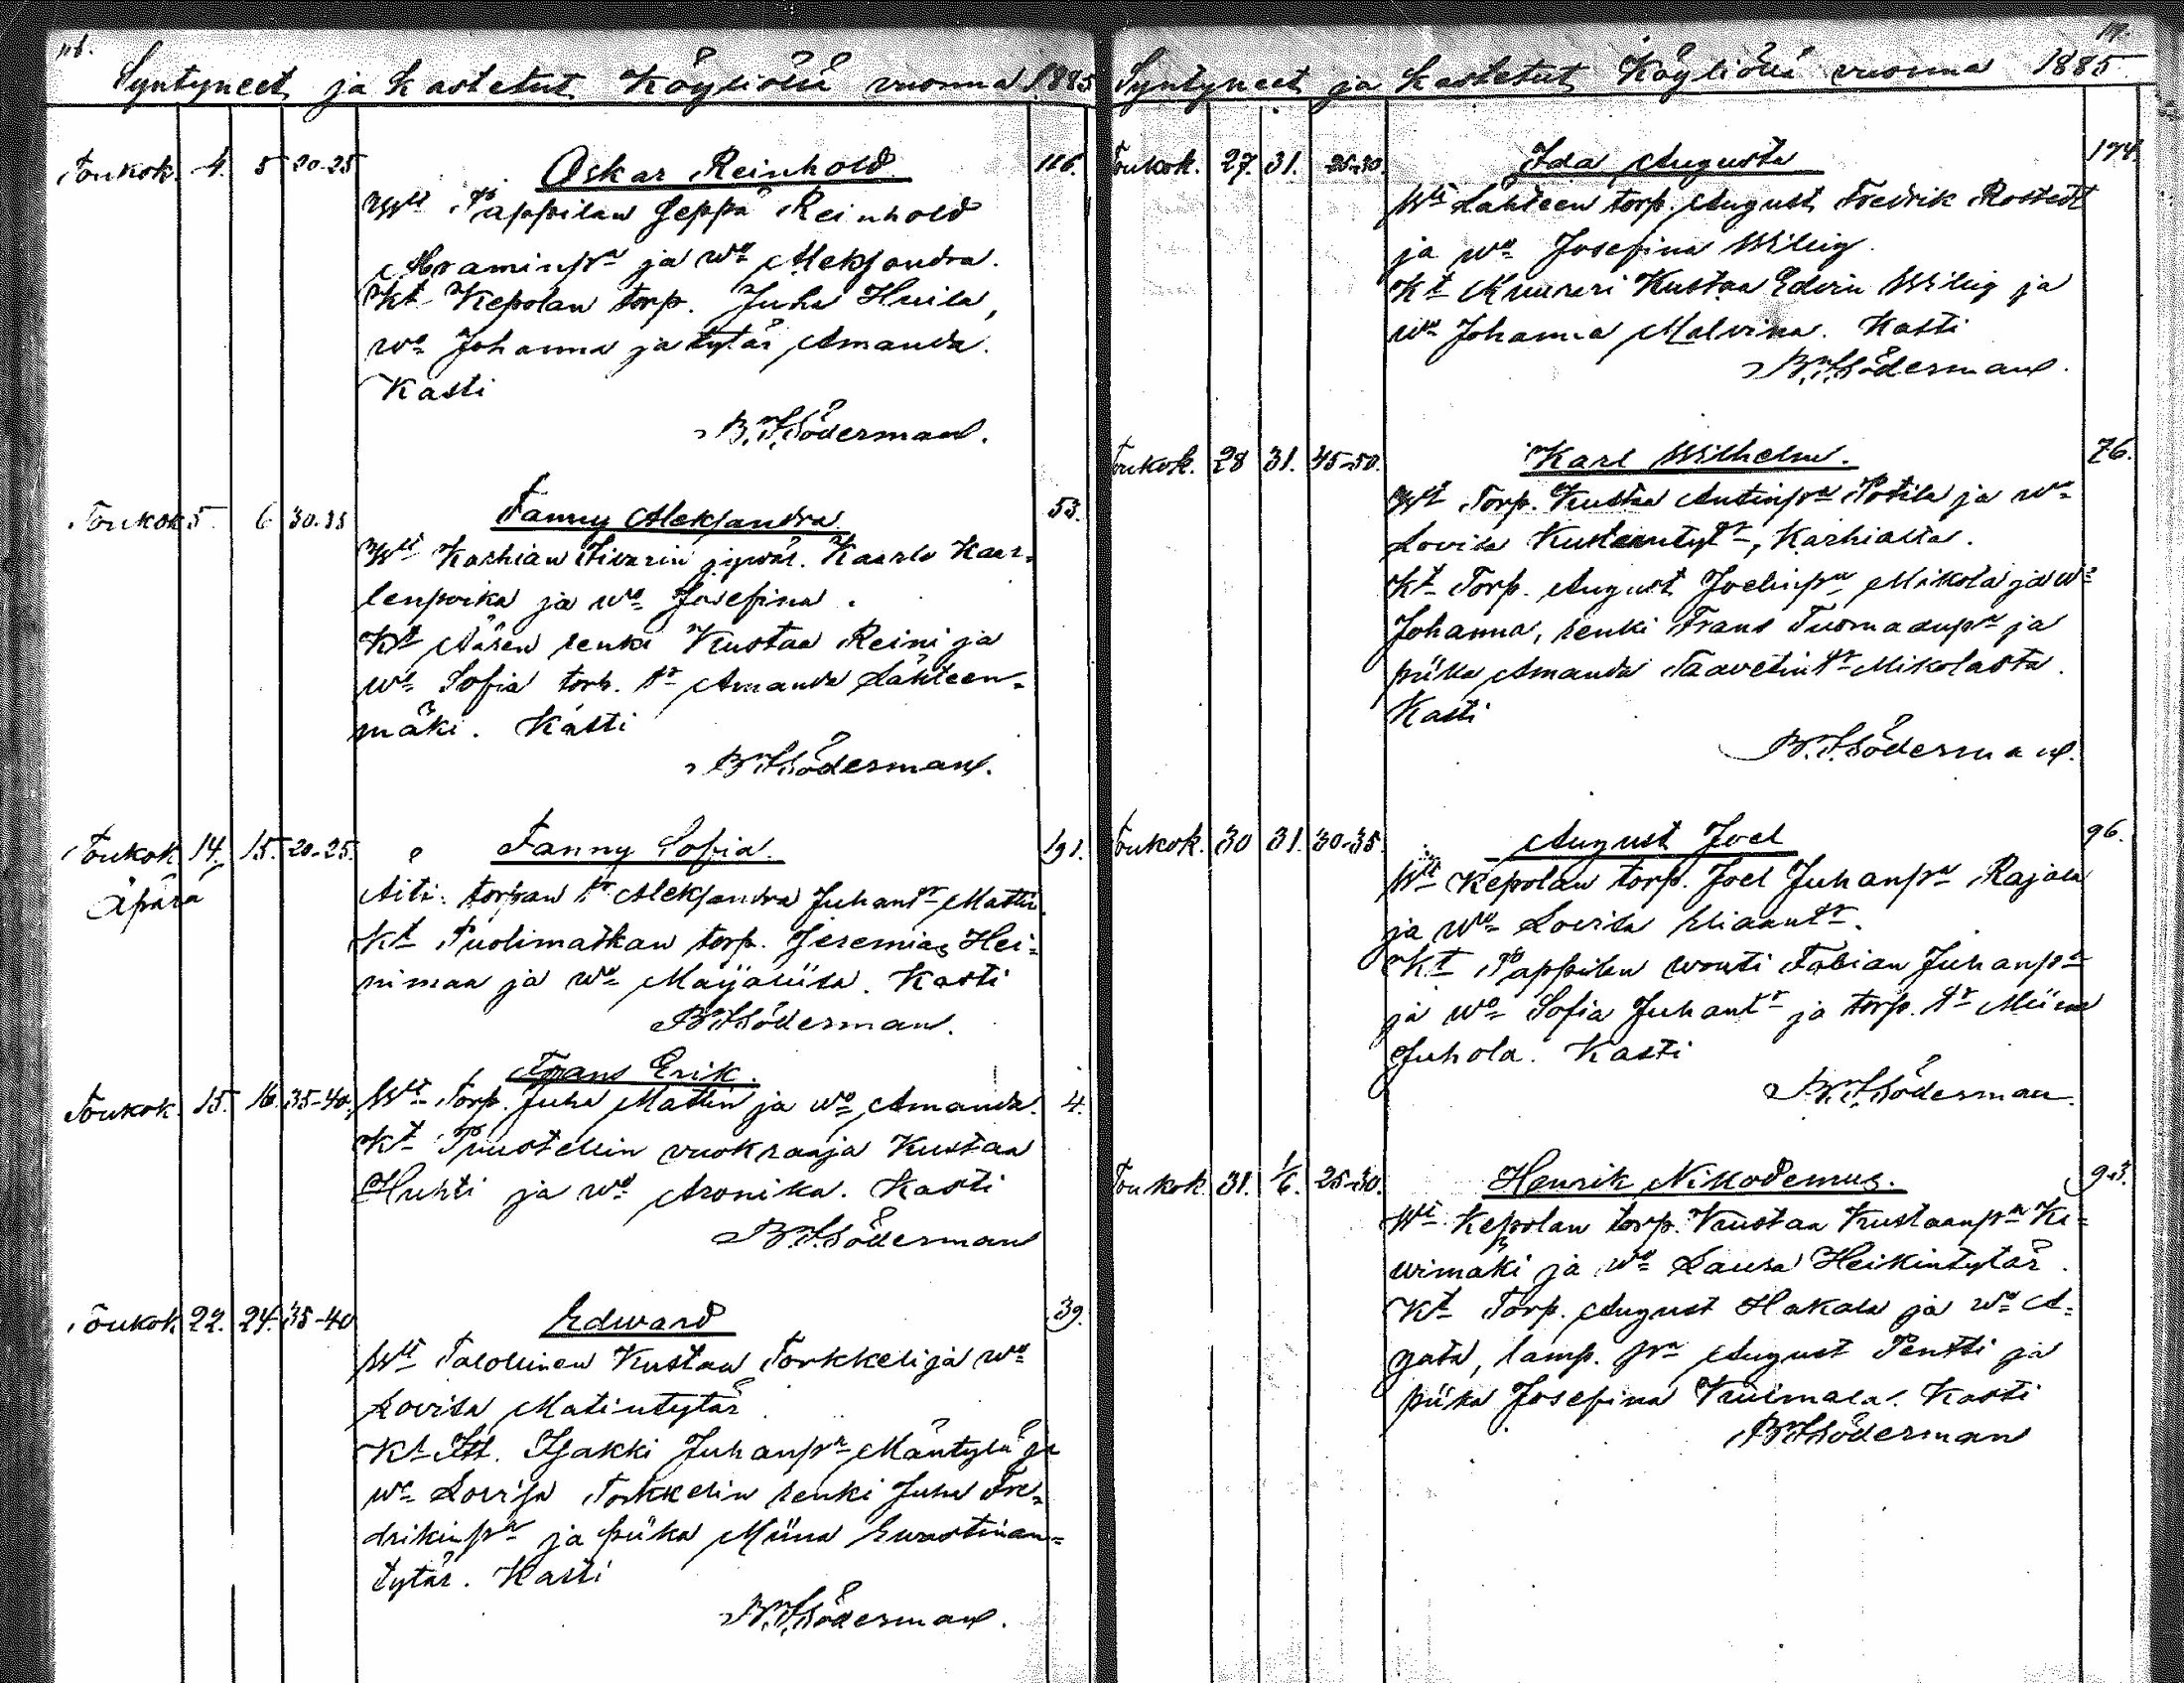 Syntyneet ja kastetut Köyliössä vuonna 1885
Toukok. 4. 5 20-25 Oskar Reinhold 116.
Wt Pappilan Seppä Reinhold
Abraminpa ja wo Aleksandra.
Kt Kepolan torp. Juha Huila,
wo Johanna ja tytär Amanda.
Kasti
B.F.Söderman.
Toukok 5. 6 30-35 Fanny Aleksandra 53.
Wt Karhian Kaarlo Kaar-
lenpoika ja wo Josefina.
Kt renki Kustaa Reini ja
wo Sofia torp. tr Amanda Lähteen-
mäki. Kasti
B.F.Söderman.
Toukok 14. 15. 20-25. Fanny Sofia. 191.
Äpärä
Äiti: torpan tr Aleksandra Juhantr Mattila
Kt Puolimatkan torp. Jeremias Hei-
nimaa ja wo Maijaliisa. Kasti
B.F.Söderman.
Frans Erik.
Toukok. 15. 16. 35-40. Wt Torp. Juha Mattin ja wo Amanda. 4.
Kt Puustellin vuokraaja Kustaa
Huhti ja wo Aronika. Kasti
B.F.Söderman
Toukok 22. 24. 35-40 Edward 39.
Wt Talollinen Kustaa Torkkeli ja wo
Lovisa Matintytär
Kt Itl. Isakki Juhanpa Mäntylä ja
wo Lovisa Torkkelin renki Juha Fre-
drikinpa ja piika Miina Ewastinan-
tytär. Kasti
B.F.Söderman.
Syntyneet ja kastetut Köyliössä vuonna 1885
Toukok. 27. 31. 25-30. Ida Augusta 174.
Wt Lähteen torp. August Fredrik Rostedt
ja wo Josefina Willig.
Kt Muurari Kustaa Edvin Willig ja
wo Johanna Malvina. Kasti
B.F.Söderman.
Toukok. 28 31. 45-50. Karl Wilhelm. 76.
Wt Torp. Kustaa Antinpa Potila ja wo
Lovisa Kustaantyt, Karhialta.
Kt Torp. August Joelinpa Mikola ja wo
Johanna, renki Frans Tuomaanpa ja
piika Amanda Taavetintr Mikolasta.
Kasti
B.F.Söderman.
Toukok. 30 31. 30-35. August Joel 96.
Wt Kepolan torp. Joel Juhanpa Rajala
ja wo Lovisa Eliaantr.
Kt Pappilan wouti Fabian Juhanpa
ja wo Sofia Juhantr ja torp. tr Miina
Juhola. Kasti
B.F.Söderman.
Toukok 31. 1/6. 25-30. Henrik Nikodemus. 93.
Wt Kepolan torp. Kustaa Kustaanpa Ki-
wimäki ja wo Laura Heikintytär.
Kt Torp. August Hakala ja wo A-
gata, lamp. pa August Pentti ja
piika Josefina Kuismala. Kasti
B.F.Söderman